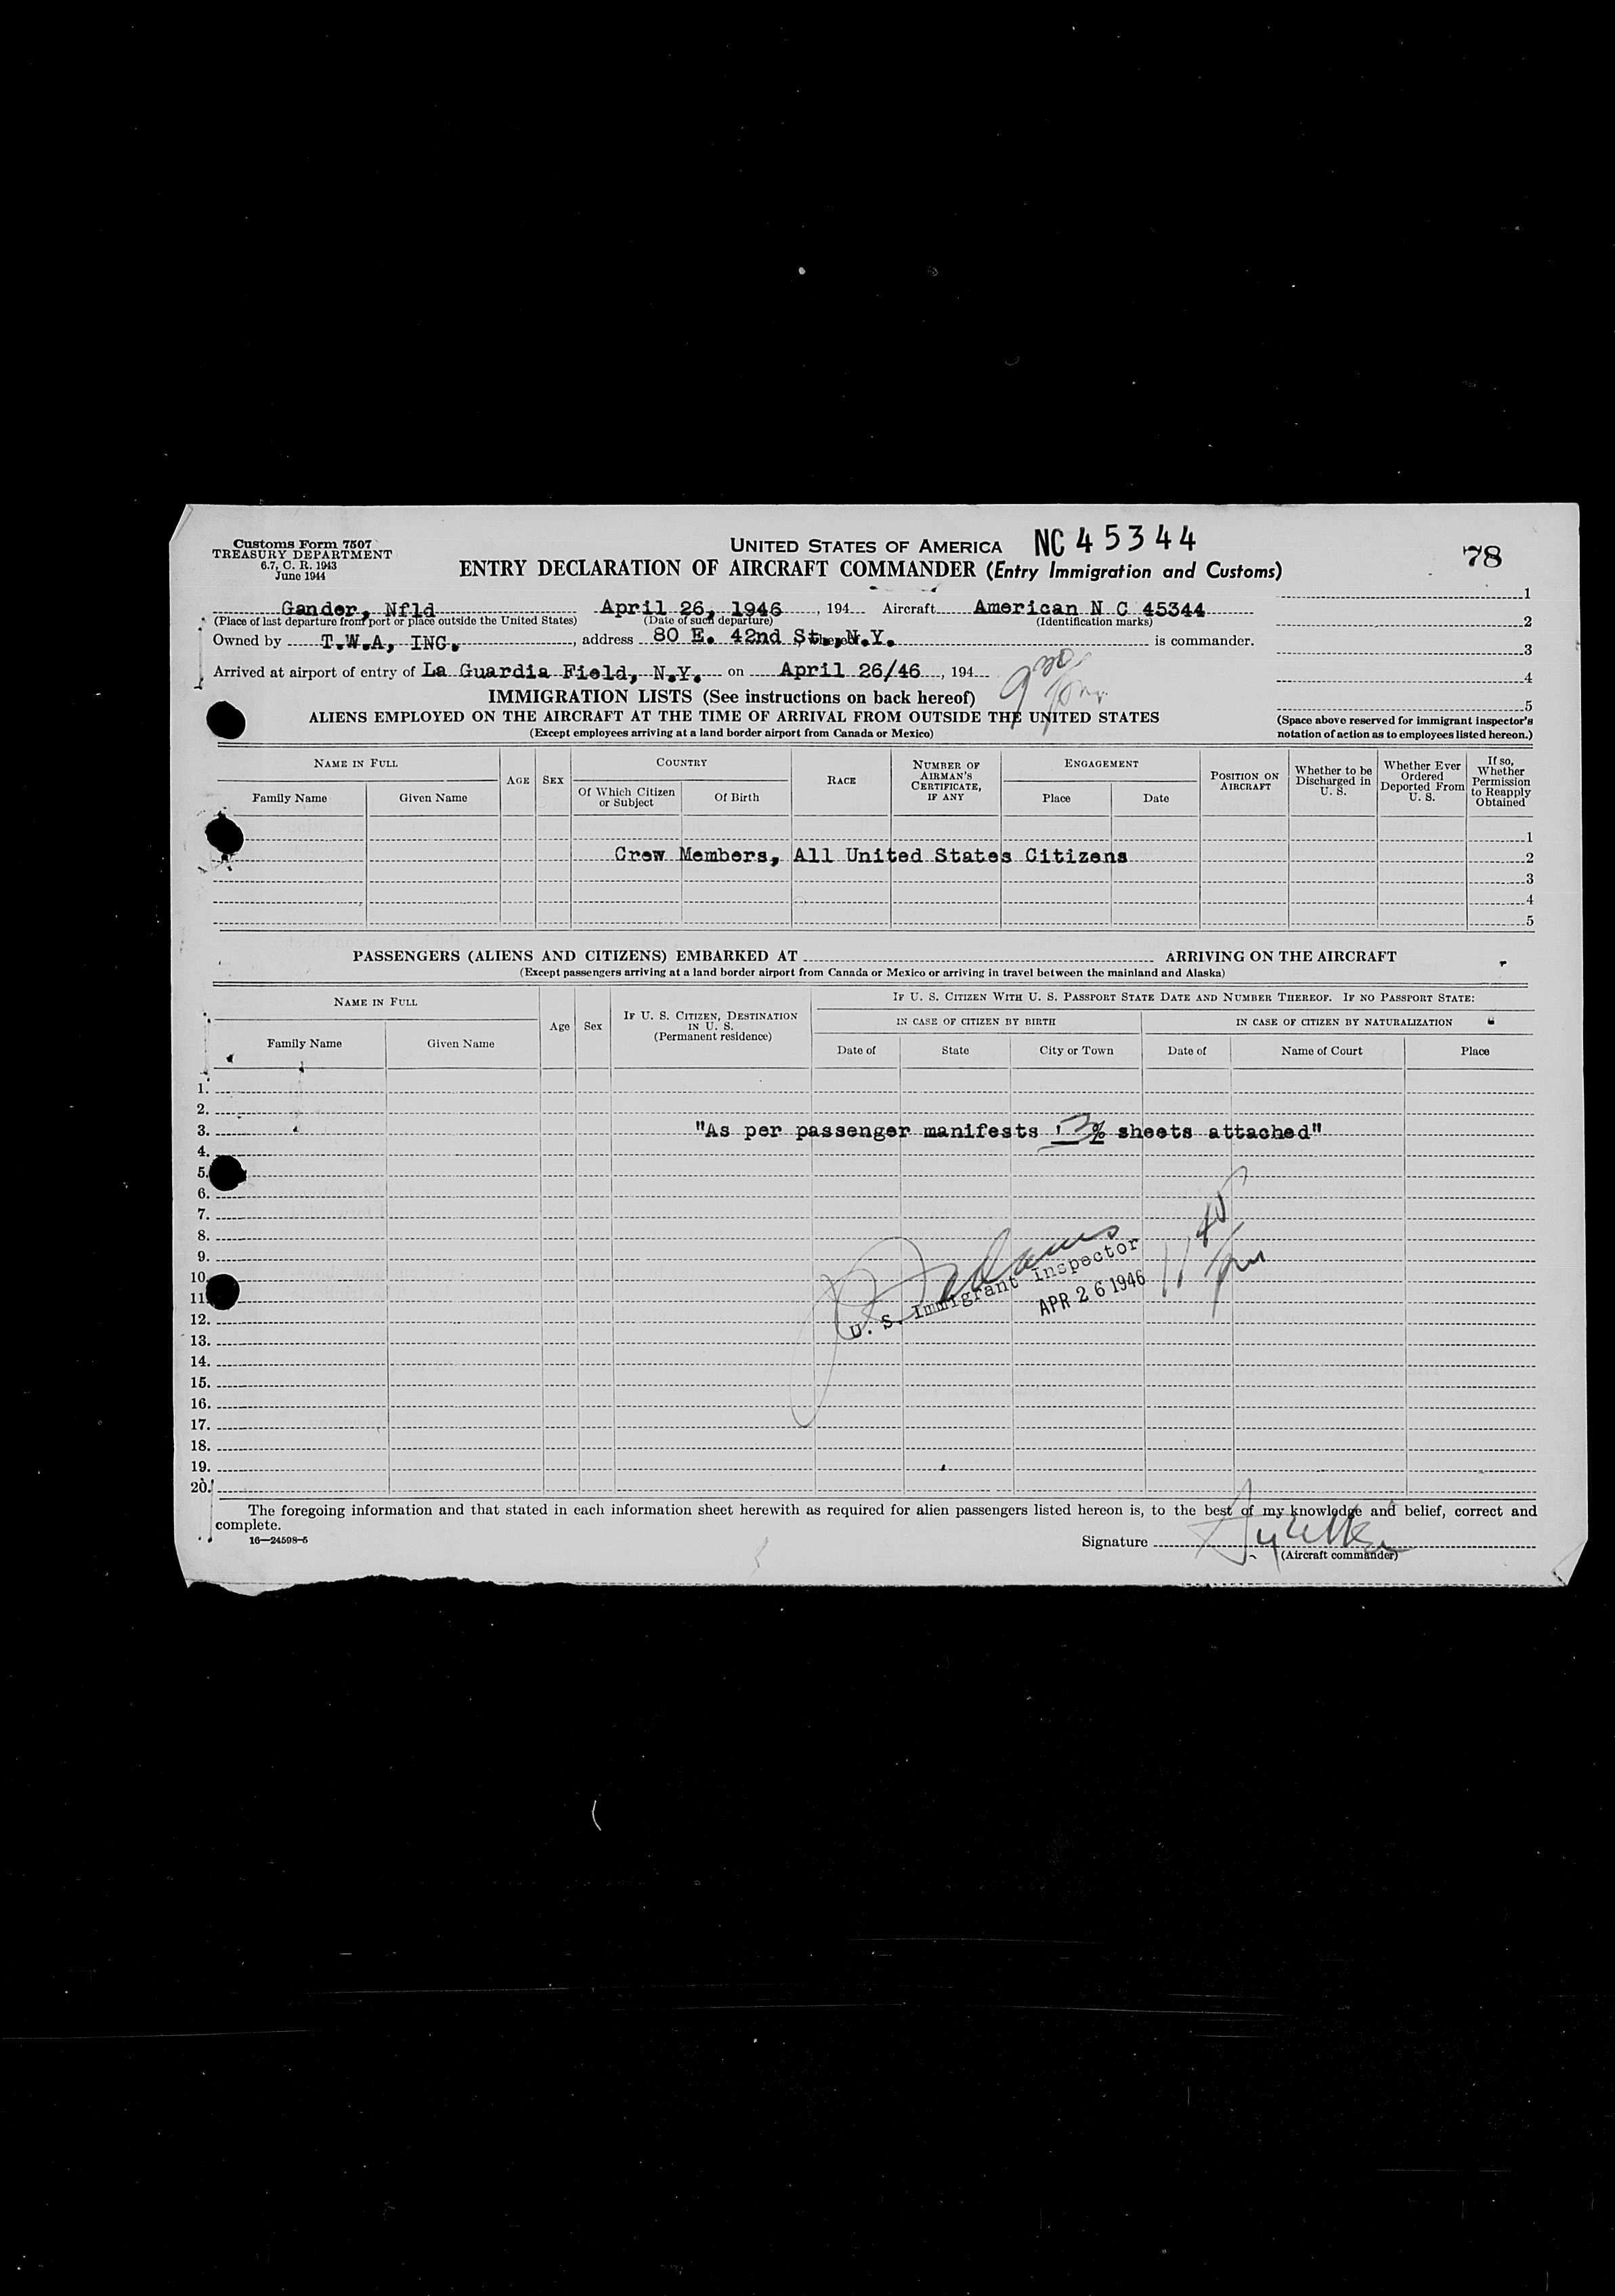 Customs Form 7507
TREASURY DEPARTMENT
6.7, C. R. 1943
June 1944
UNITED STATES OF AMERICA NC 45344
78
ENTRY DECLARATION OF AIRCRAFT COMMANDER (Entry Immigration and Customs)
Gander, Nfld April 26, 1946, 194 Aircraft American N C 45344
(Place of last departure from port or place outside the United States) (Date of such departure) (Identification marks)
Owned by T.W.A, INC., address 80 E. 42nd St., N.Y. is commander.
Arrived at airport of entry of La Guardia Field, N.Y. on April 26/46, 194
9 30 pm
1
2
3
4
5
(Space above reserved for immigrant inspector's
notation of action as to employees listed hereon.)
IMMIGRATION LISTS (See instructions on back hereof)
ALIENS EMPLOYED ON THE AIRCRAFT AT THE TIME OF ARRIVAL FROM OUTSIDE THE UNITED STATES
(Except employees arriving at a land border airport from Canada or Mexico)
NAME IN FULL
Family Name Given Name
AGE
SEX
COUNTRY
Of Which Citizen or Subject
Of Birth
RACE
NUMBER OF AIRMAN'S CERTIFICATE, IF ANY
ENGAGEMENT
Place Date
POSITION ON AIRCRAFT
Whether to be Discharged in U. S.
Whether Ever Ordered Deported From U. S.
If so, Whether Permission to Reapply Obtained
1
Crew Members, All United States Citizens 2
3
4
5
PASSENGERS (ALIENS AND CITIZENS) EMBARKED AT ARRIVING ON THE AIRCRAFT
(Except passengers arriving at a land border airport from Canada or Mexico or arriving in travel between the mainland and Alaska)
NAME IN FULL
Family Name Given Name
Age
Sex
IF U. S. CITIZEN, DESTINATION
IN U. S.
(Permanent residence)
IF U. S. CITIZEN WITH U. S. PASSPORT STATE DATE AND NUMBER THEREOF. IF NO PASSPORT STATE:
IN CASE OF CITIZEN BY BIRTH IN CASE OF CITIZEN BY NATURALIZATION
Date of State City or Town Date of Name of Court Place
1.
2.
3. "As per passenger manifests 3 sheets attached"
4.
5.
6.
7.
8.
9.
10.
11.
12.
13.
14.
15.
16.
17.
18.
19.
20.
Adams
U. S. Immigrant Inspector
APR 26 1946
11 40 pm
The foregoing information and that stated in each information sheet herewith as required for alien passengers listed hereon is, to the best of my knowledge and belief, correct and
complete.
16—24598-5
Signature
(Aircraft commander)